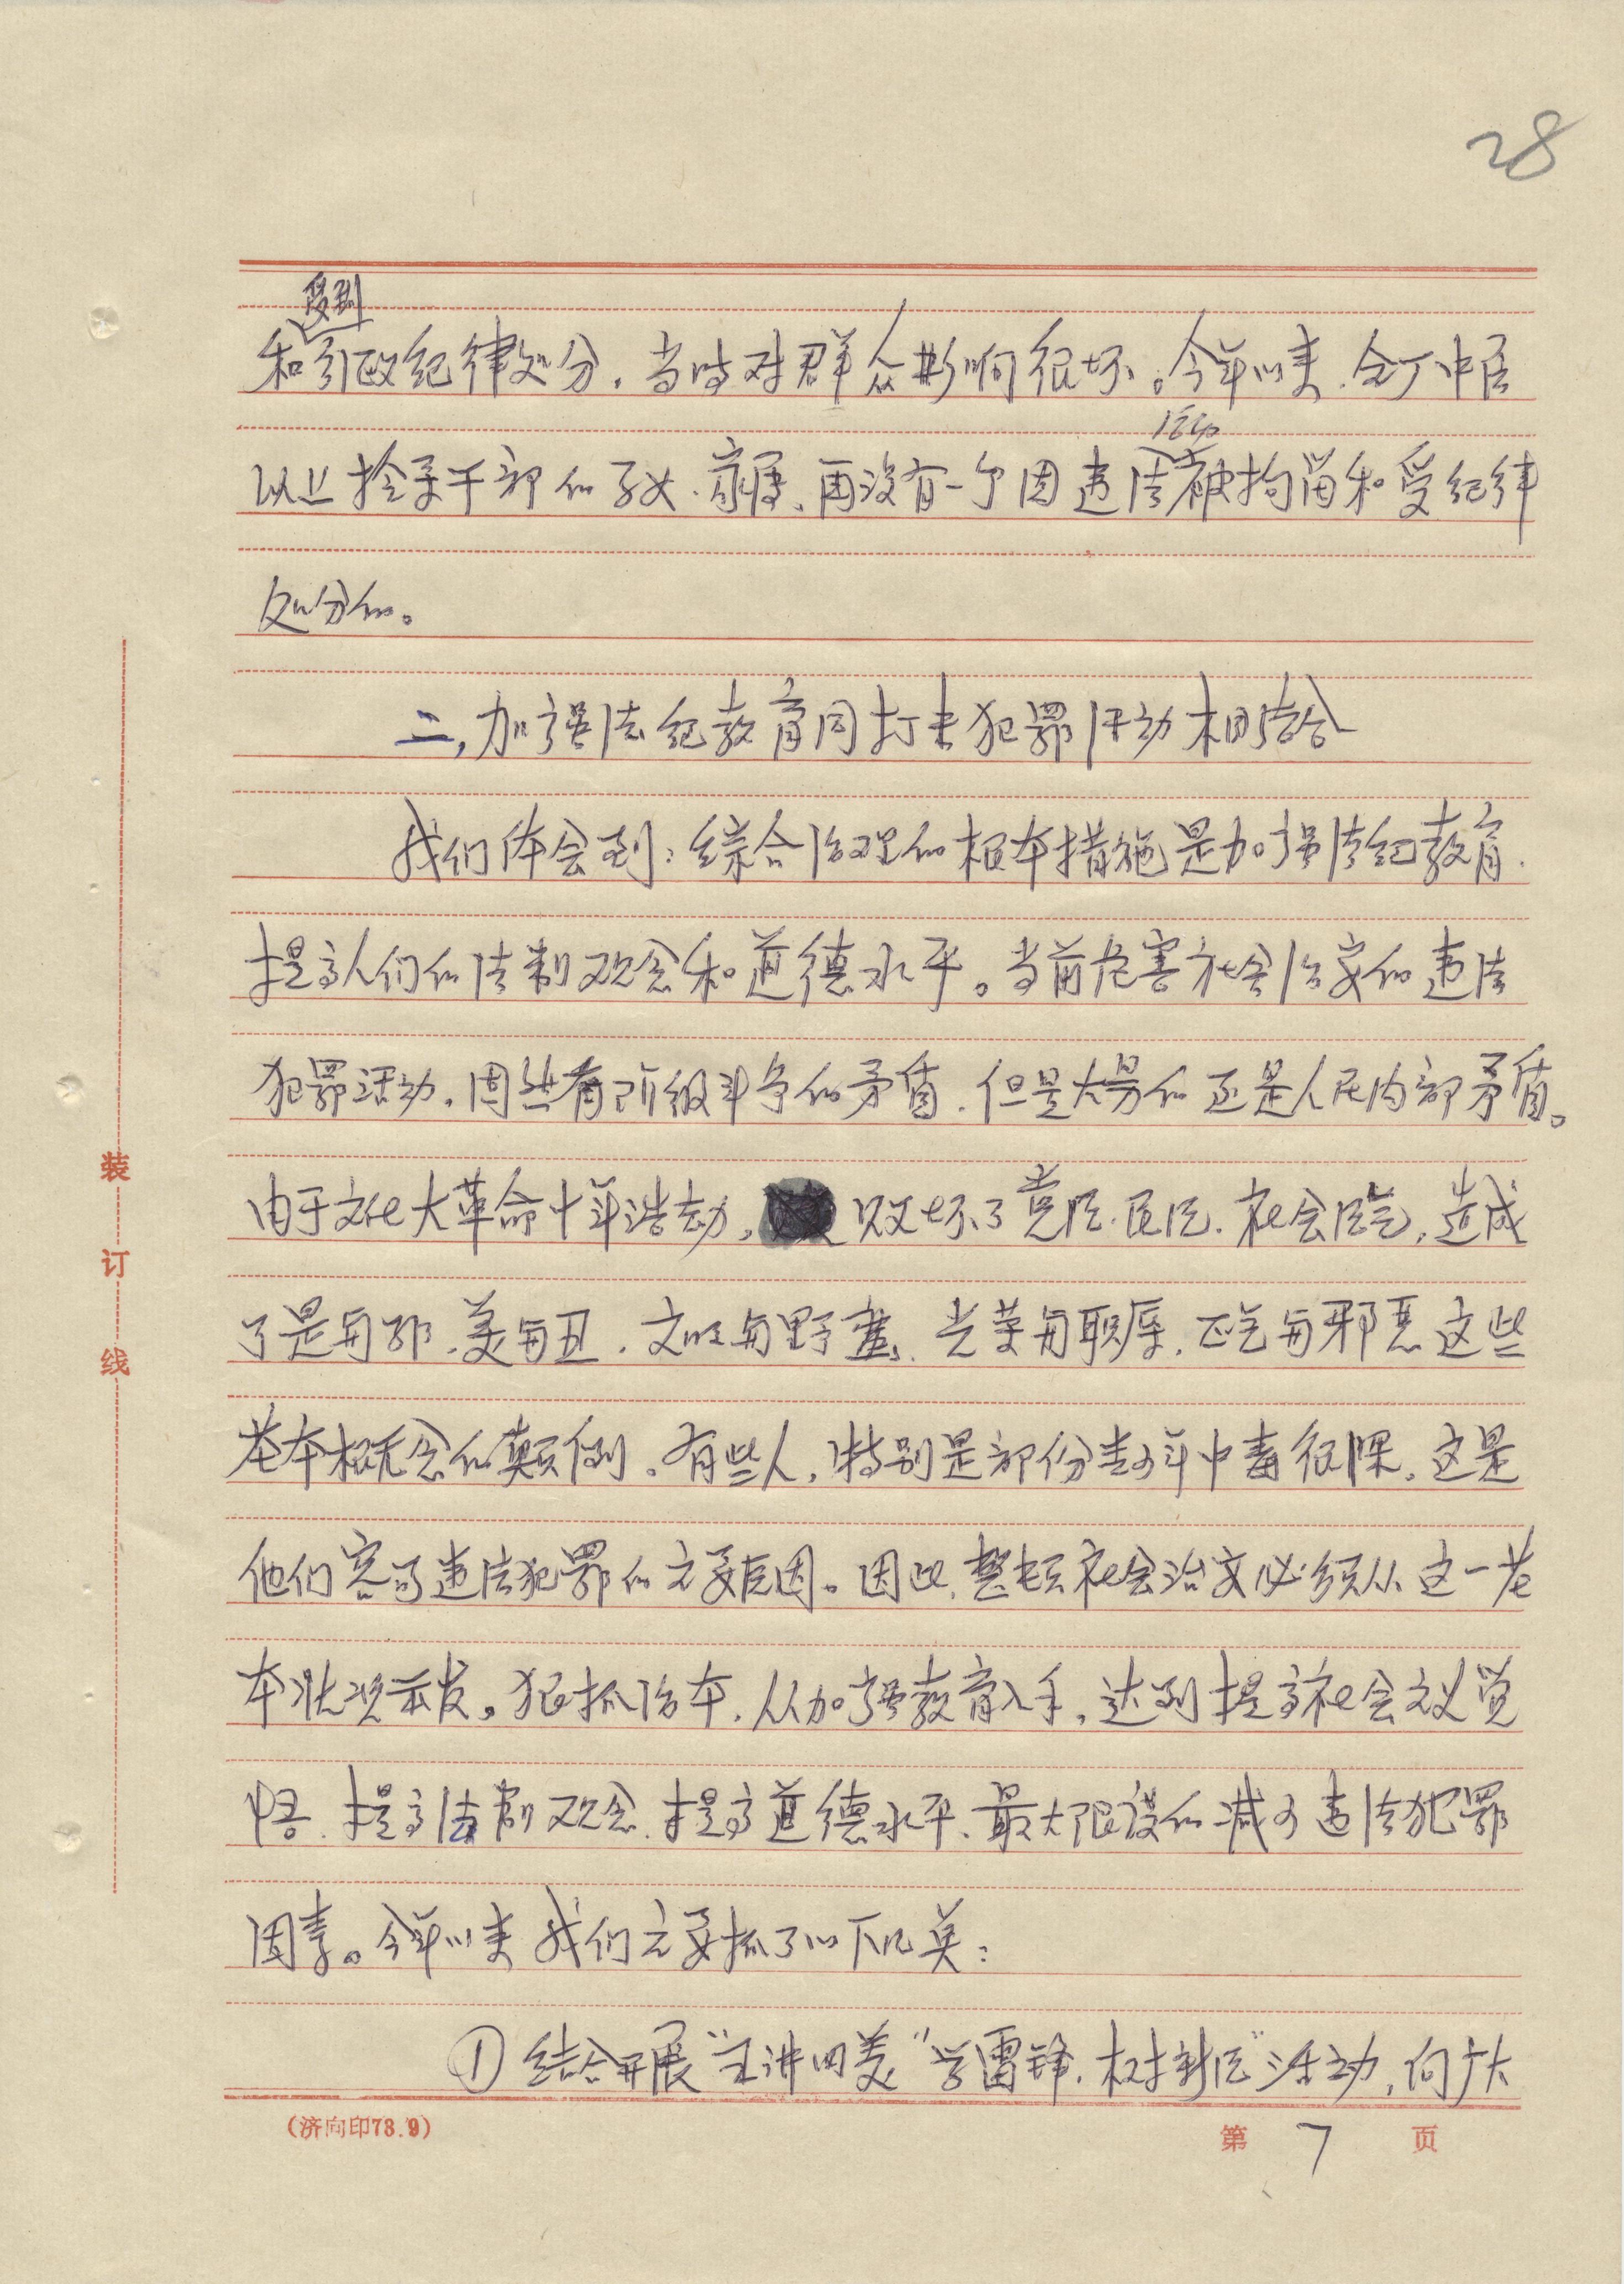 28
受到
和行政纪律处分，当时对群众影响很坏。今年以来，全厂中层
活动
以上领导干部的子女、家属，再没有一个因违法被拘留和受纪律
处分的。
二，加强法纪教育同打击犯罪活动相结合
我们体会到：综合治理的根本措施是加强法纪教育，
提高人们的法制观念和道德水平。当前危害社会治安的违法
犯罪活动，固然有阶级斗争的矛盾，但是大量的还是人民内部矛盾。
由于文化大革命十年浩劫，败坏了党风、民风、社会风气，造成
了是与非、美与丑、文明与野蛮、光荣与耻辱，正气与邪恶这些
基本概念的颠倒。有些人，特别是部份青少年中毒很深，这是
他们容易违法犯罪的主要原因。因此，整顿社会治安必须从这一基
本状况出发，狠抓治本，从加强教育入手，达到提高社会主义觉
悟、提高法制观念、提高道德水平、最大限度的减少违法犯罪
因素。今年以来我们主要抓了以下几类：
①结合开展“五讲四美”“学雷锋、树新风”活动，向广大
装
订
线
（济向印78.9）
第 7 页